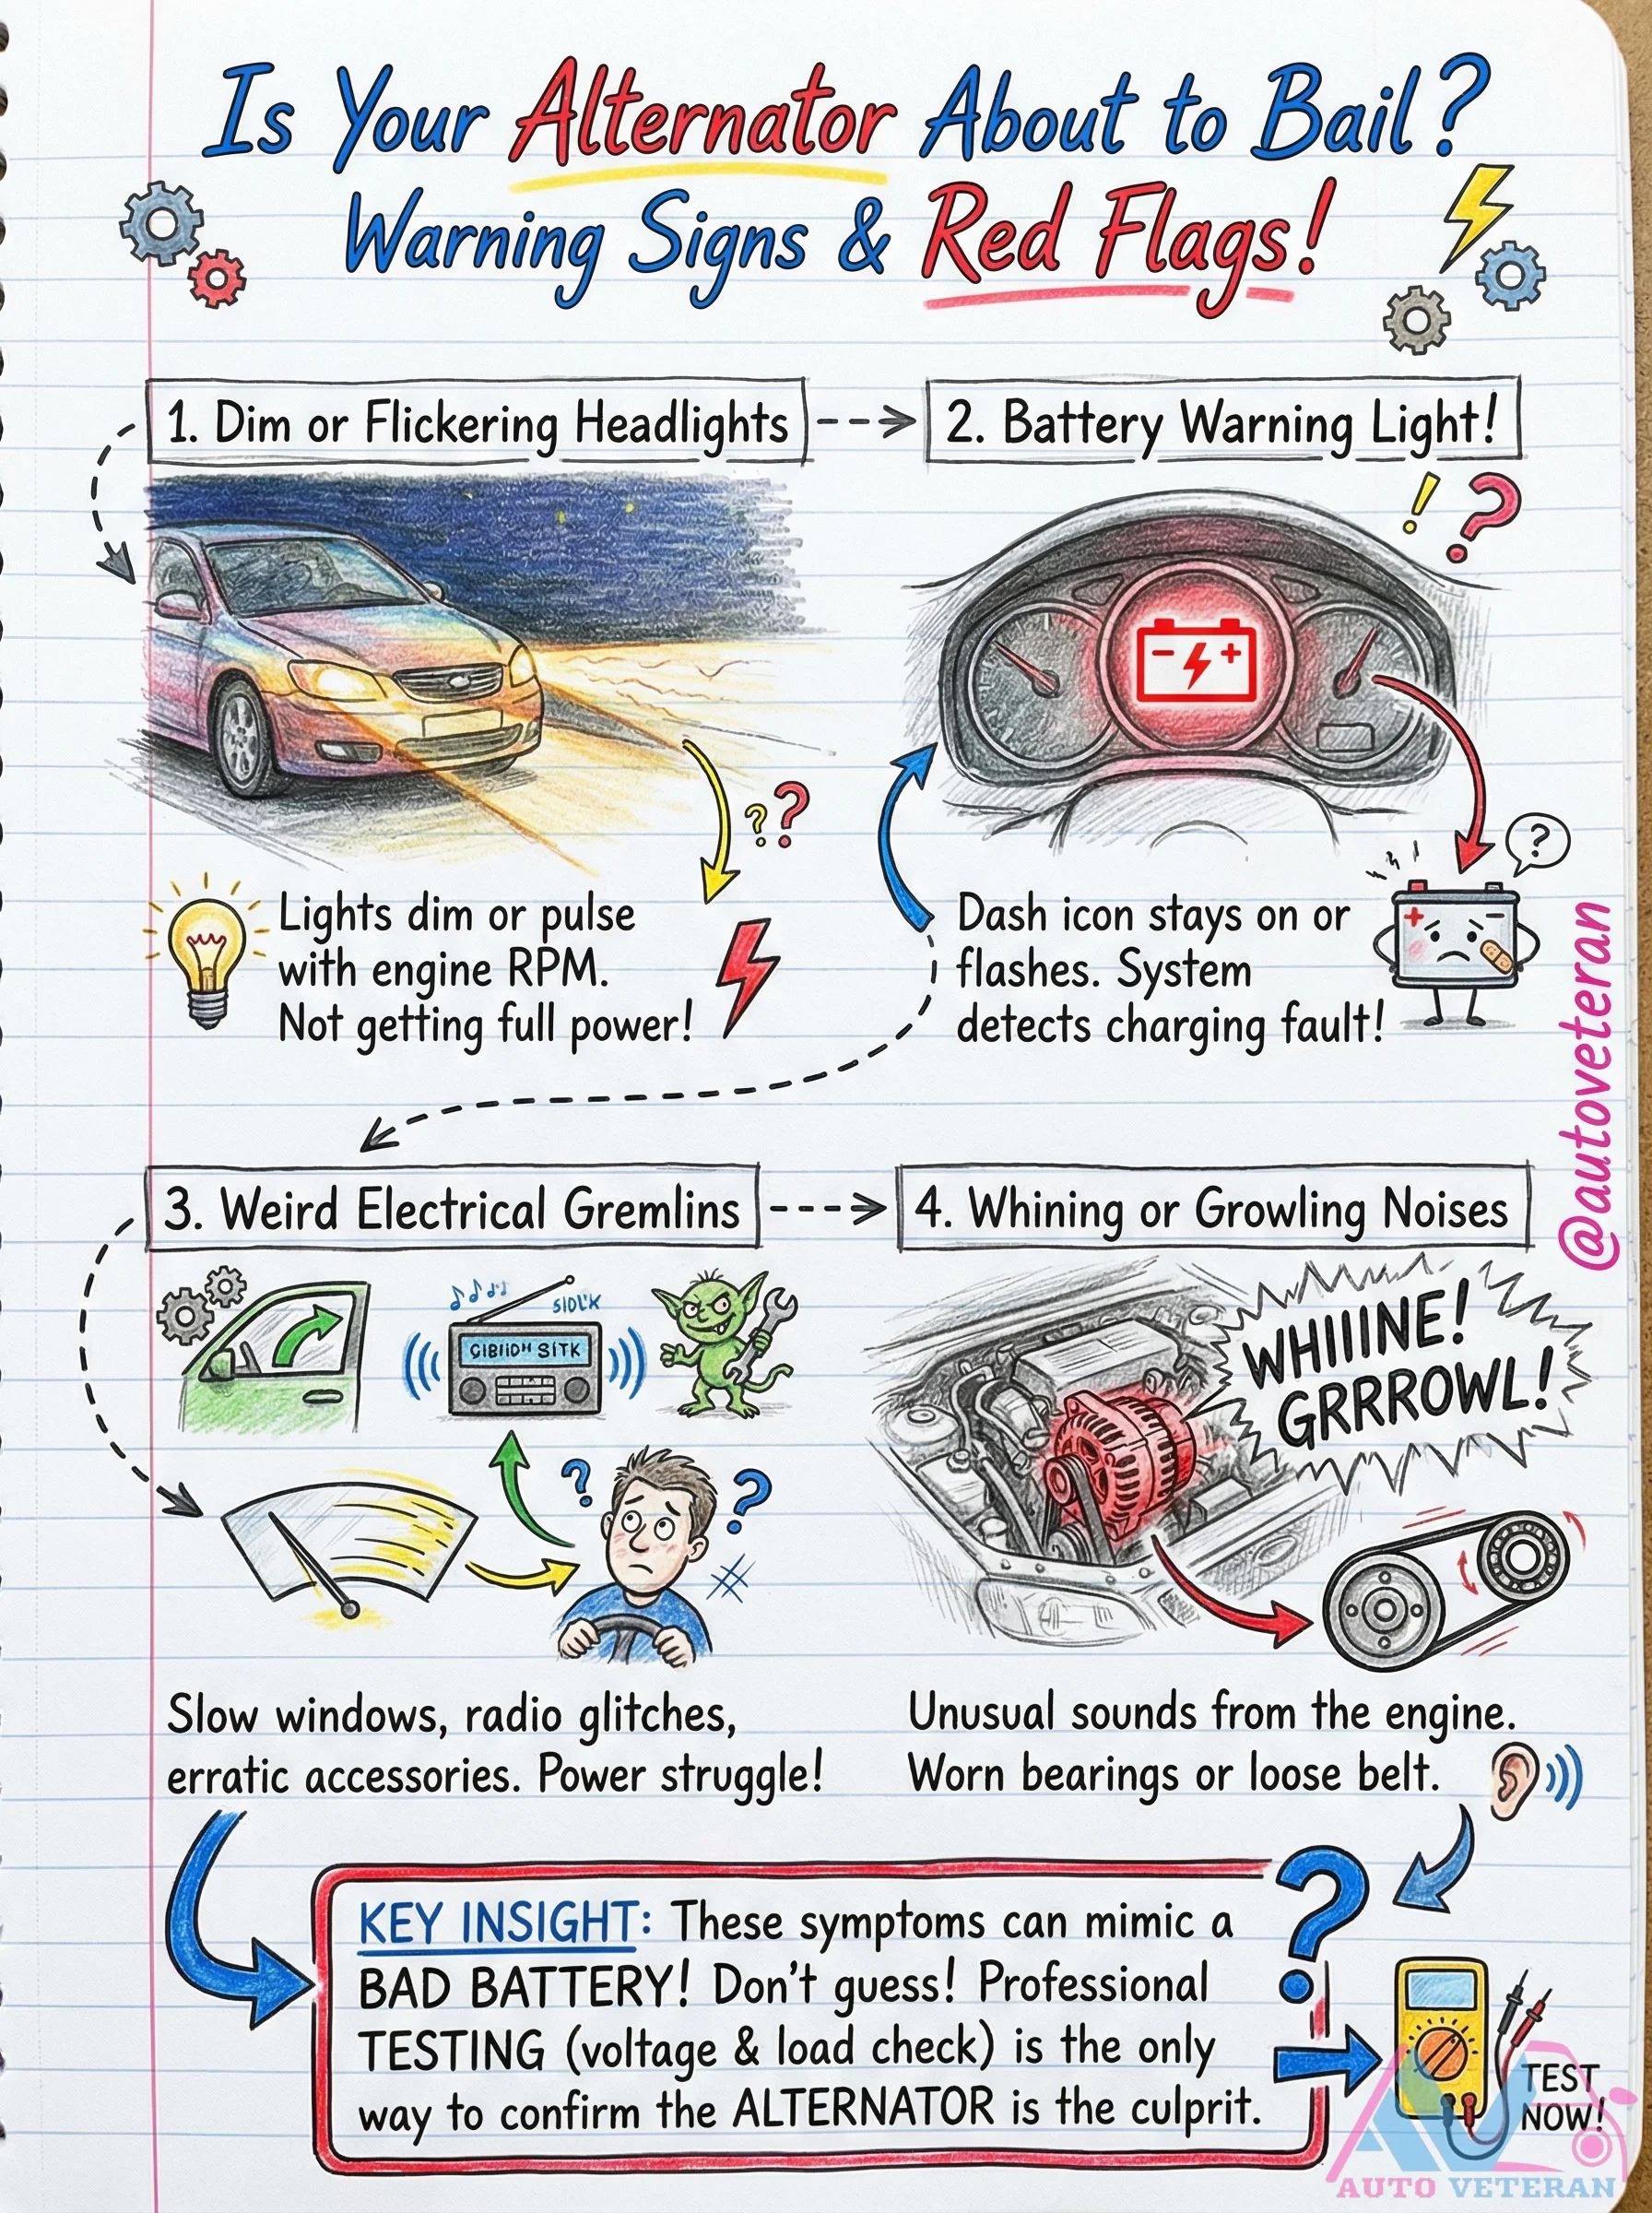 Is Your Alternator About to Bail?
Warning Signs & Red Flags!
1. Dim or Flickering Headlights
2. Battery Warning Light!
! ?
- +
? ?
?
+ -
Lights dim or pulse
with engine RPM.
Not getting full power!
Dash icon stays on or
flashes. System
detects charging fault!
@autoveteran
3. Weird Electrical Gremlins
4. Whining or Growling Noises
WHIIINE!
GRRROWL!
? ?
Slow windows, radio glitches,
erratic accessories. Power struggle!
Unusual sounds from the engine.
Worn bearings or loose belt.
?
KEY INSIGHT: These symptoms can mimic a
BAD BATTERY! Don't guess! Professional
TESTING (voltage & load check) is the only
way to confirm the ALTERNATOR is the culprit.
TEST
NOW!
AV
AUTO VETERAN